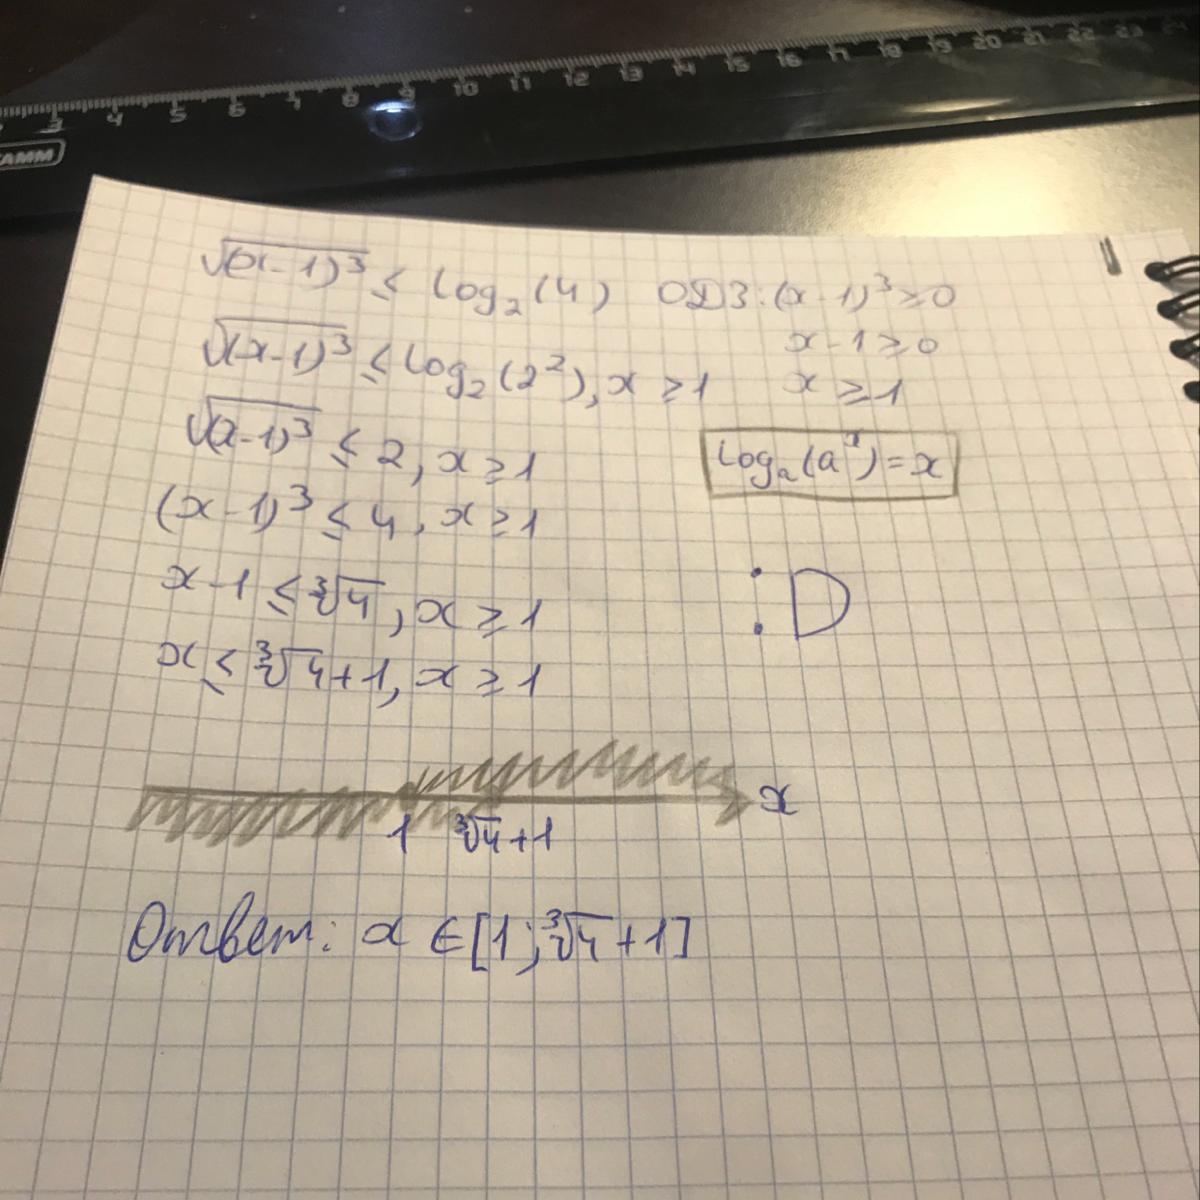 3 4 5 6 7 8 9 10 11 12 13 14 15 16 17 18 19 20 21 22 23 24
АММ
√(x-1)³ ≤ log₂(4) ОДЗ: (x-1)³ ≥ 0
x-1 ≥ 0
√(x-1)³ ≤ log₂(2²), x ≥ 1 x ≥ 1
√(x-1)³ ≤ 2, x ≥ 1 logₐ(aˣ) = x
(x-1)³ ≤ 4, x ≥ 1
x-1 ≤ ∛4, x ≥ 1 :D
x ≤ ∛4+1, x ≥ 1
x
1 ∛4+1
Ответ: x ∈ [1; ∛4+1]